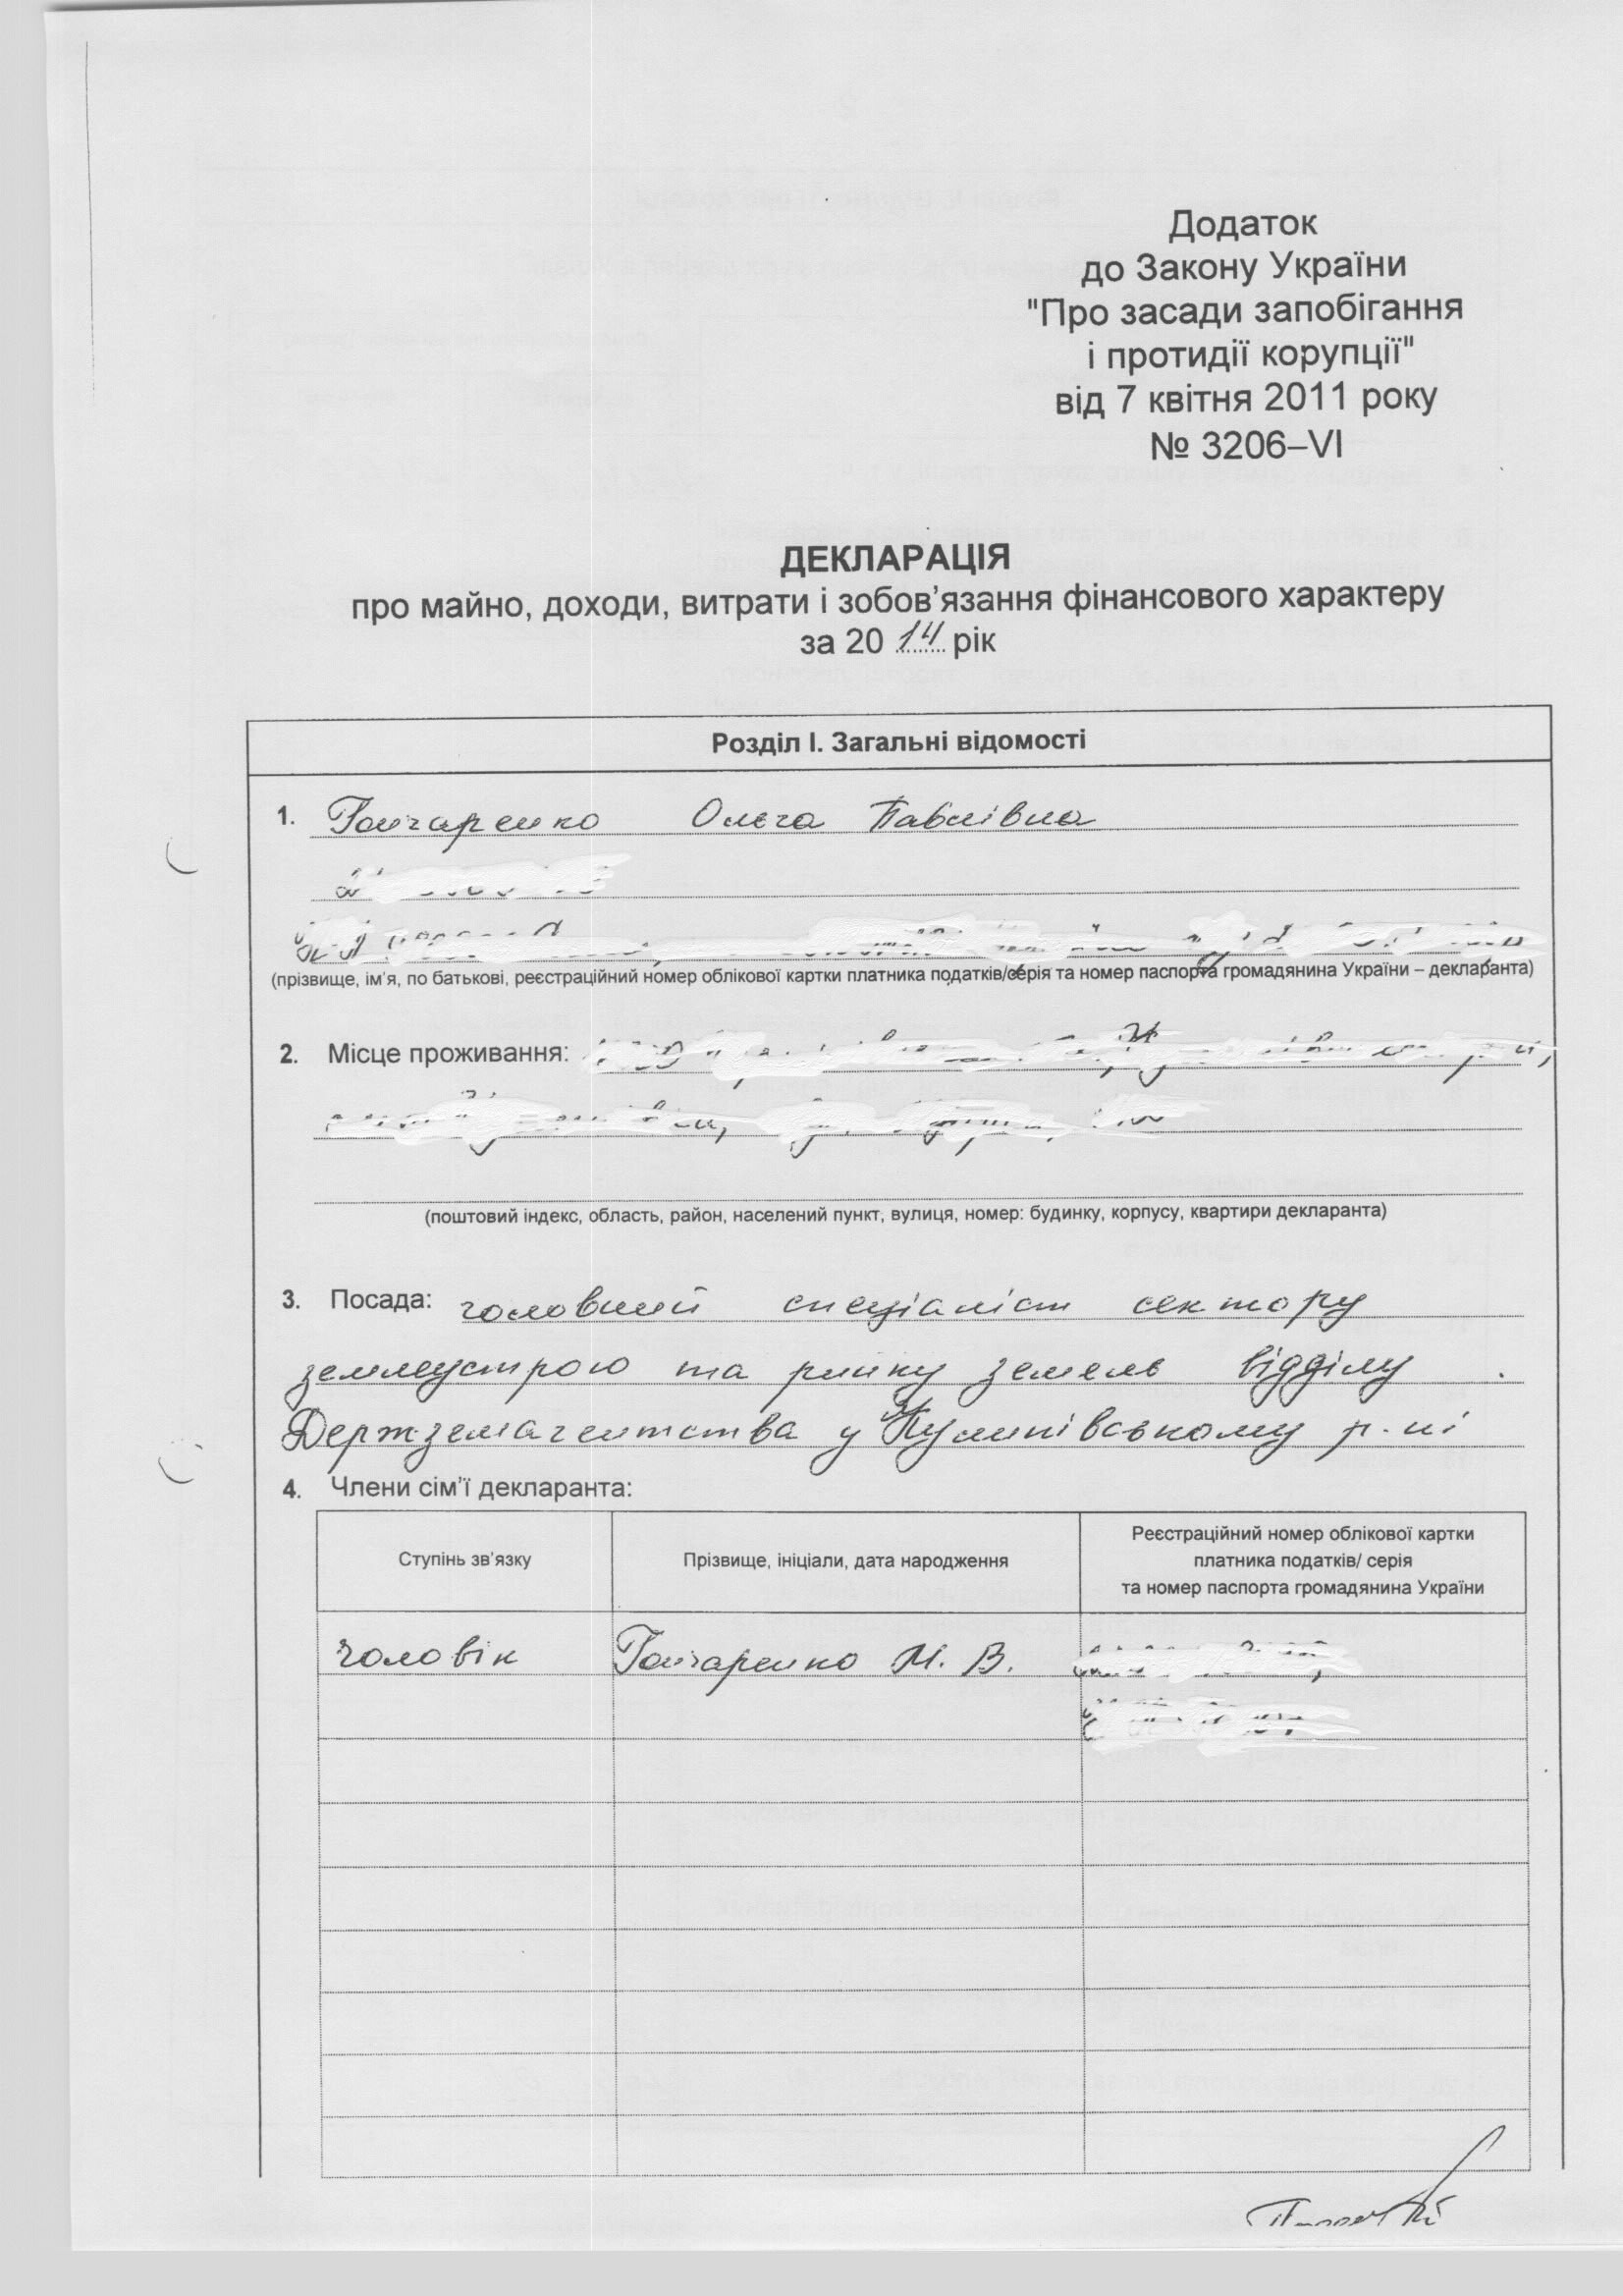 Додаток
до Закону України
"Про засади запобігання
і протидії корупції"
від 7 квітня 2011 року
№ 3206–VI
ДЕКЛАРАЦІЯ
про майно, доходи, витрати і зобов’язання фінансового характеру
за 20 14 рік
Розділ I. Загальні відомості
1. Гончаренко Ольга Павлівна
(прізвище, ім’я, по батькові, реєстраційний номер облікової картки платника податків/серія та номер паспорта громадянина України – декларанта)
2. Місце проживання:
(поштовий індекс, область, район, населений пункт, вулиця, номер: будинку, корпусу, квартири декларанта)
3. Посада: головний спеціаліст сектору
землеустрою та ринку земель відділу
Держземагентства у р-ні
4. Члени сім’ї декларанта:
Ступінь зв’язку
Прізвище, ініціали, дата народження
Реєстраційний номер облікової картки
платника податків/ серія
та номер паспорта громадянина України
чоловік Гончаренко М. В.